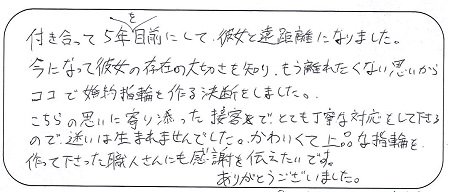 付き合って5年を目前にして、彼女と遠距離になりました。
今になって彼女の存在の大切さを知り、もう離れたくない思いから
ココで婚約指輪を作る決断をしました。
こちらの思いに寄り添った接客で、とても丁寧な対応をして下さる
ので、迷いは生まれませんでした。かわいくて上品な指輪を
作って下さった職人さんにも感謝を伝えたいです。
ありがとうございました。